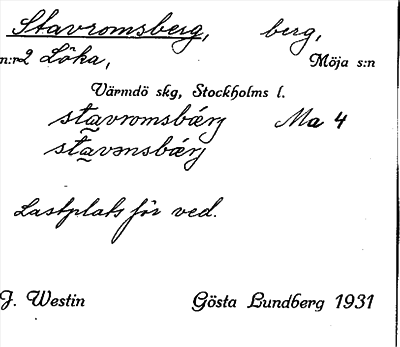 Stavromsberg, berg,
n:r 2 Löka, Möja s:n
Värmdö skg, Stockholms l.
stavromsbærj Ma 4
stavənsbærj
Lastplats för ved.
J. Westin Gösta Lundberg 1931